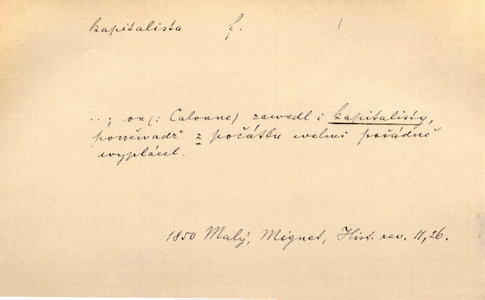 kapitalista f. |
..; on (: Calonne) zawedl i kapitalisty,
poněwadž z počátku welmi pořádně
wyplácel.
1850 Malý, Mignet, Hist. rev. 11, 26.